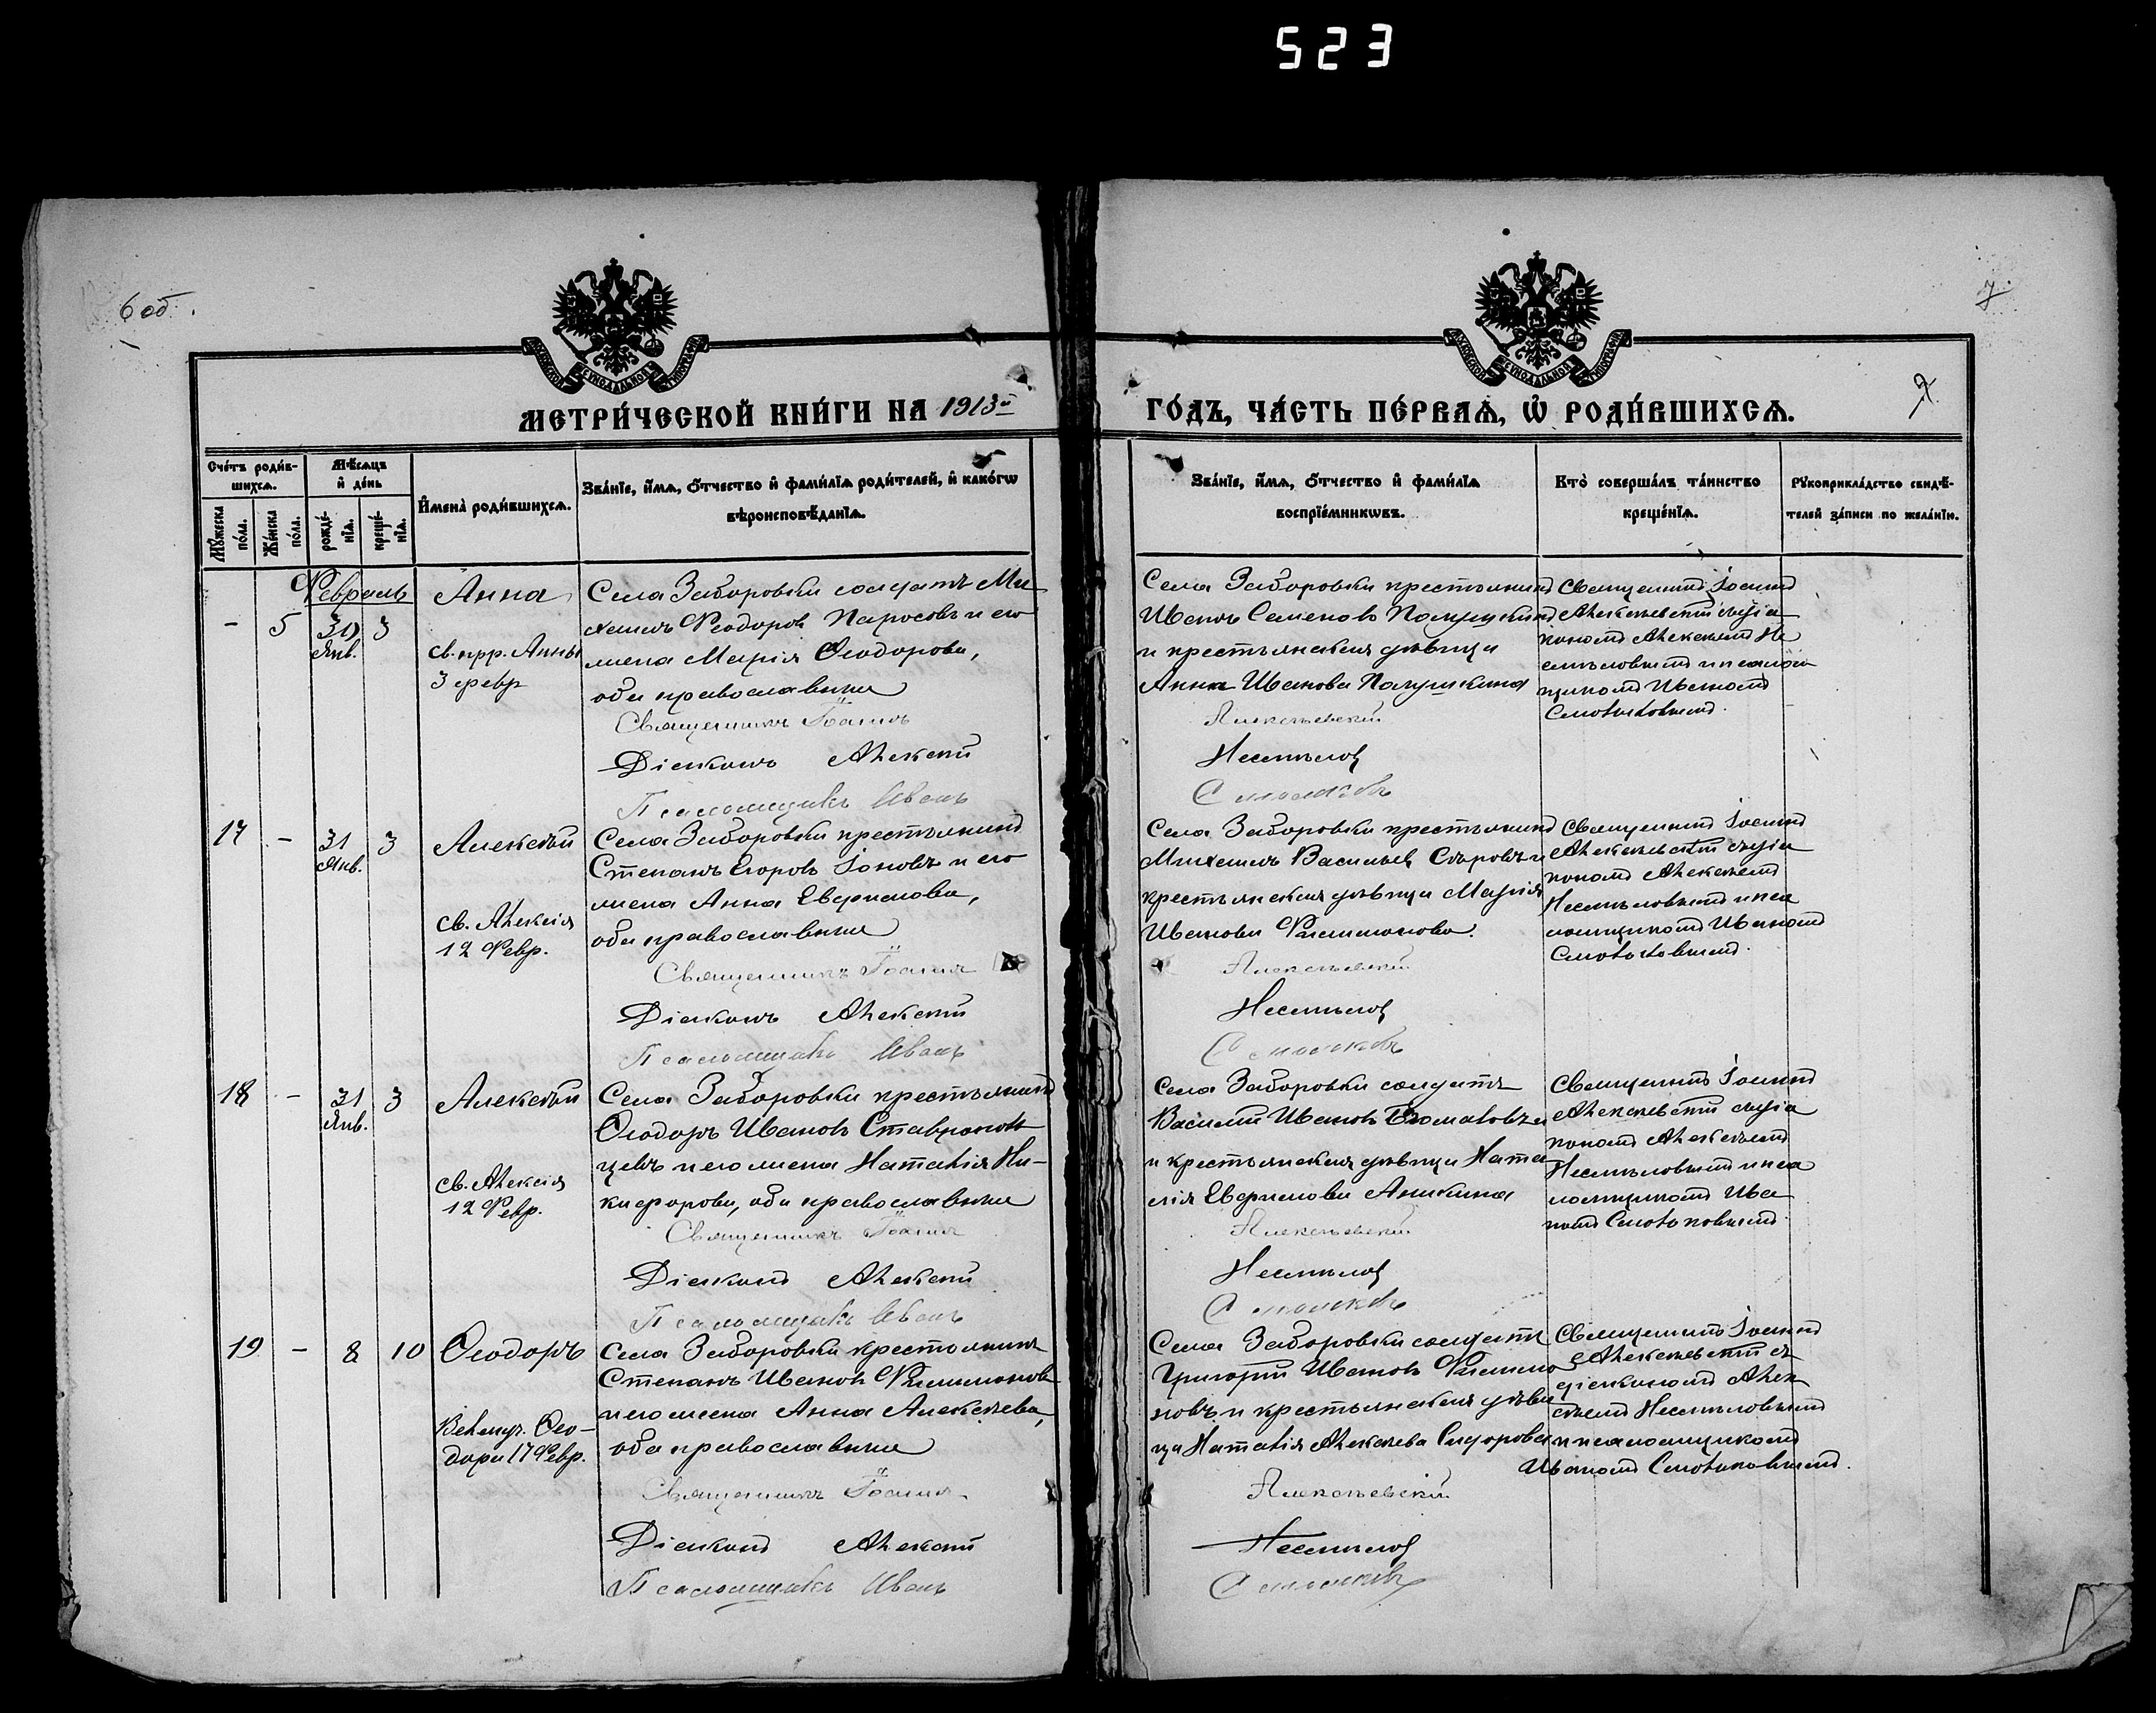 523
6 об.
7
МЕТРИ́ЧЕСКОЙ КНИ́ГИ НА 1913й
ГО́ДЪ, ЧА́СТЬ ПЕ́РВАѦ, Ѡ҆ РОДИ́ВШИХСѦ.
Сче́тъ роди́в-
шихсѧ.
Мѣ́сѧцъ
и҆ де́нь
Мꙋ́жеска по́ла.
Же́нска по́ла.
рожде́-
нїѧ.
креще́-
нїѧ.
И҆мена̀ роди́вшихсѧ.
Зва́нїе, и҆́мѧ, ѻ҆́тчество и҆ фами́лїѧ роди́телей, и҆ како́гѡ
вѣроисповѣ́данїѧ.
Зва́нїе, и҆́мѧ, ѻ҆́тчество и҆ фами́лїѧ
воспрїе́мникѡвъ.
Кто̀ соверша́лъ та́инство
креще́нїѧ.
Рꙋкоприкла́дство свидѣ́-
телей за́писи по жела́нїю.
Февраль
- 5 31 Янв. 3
Анна
св. прр. Анны
3 февр
Села Заборовки солдатъ Ми-
хаилъ Феодоровъ Паросовъ и его
жена Марія Ѳеодорова,
оба православные
Священникъ Іоаннъ
Діаконъ Алексѣй
Псаломщикъ Иванъ
Села Заборовки крестьянинъ
Иванъ Семеновъ Полушкинъ
и крестьянская дѣвица
Анна Иванова Полушкина
Алексѣевскій
Несмѣловъ
Священникъ Іоаннъ
Алексѣевскій съ діа
кономъ Алексѣемъ Не
смѣловымъ и псалом
щикомъ Иваномъ
17 - 31 Янв. 3
Алексѣй
св. Алексія
12 Февр.
Села Заборовки крестьянинъ
Степанъ Егоровъ Іоновъ и его
жена Анна Евфимова,
оба православные
Священникъ Іоаннъ
Діаконъ Алексѣй
Псаломщикъ Иванъ
Села Заборовки крестьянинъ
Михаилъ Васильевъ Сѣровъ и
крестьянская дѣвица Марія
Иванова Филимонова.
Алексѣевскій
Несмѣловъ
Священникъ Іоаннъ
Алексѣевскій съ діа
кономъ Алексѣемъ
Несмѣловымъ и пса
ломщикомъ Иваномъ
18 - 31 Янв. 3
Алексѣй
св. Алексія
12 Февр.
Села Заборовки крестьянинъ
Ѳеодоръ Ивановъ
и его жена Наталія Ни-
кифорова, оба православные
Священникъ Іоаннъ
Діаконъ Алексѣй
Псаломщикъ Иванъ
Села Заборовки солдатъ
Василій Ивановъ
и крестьянская дѣвица Ната
лія Евфимова Аникина
Алексѣевскій
Несмѣловъ
Священникъ Іоаннъ
Алексѣевскій съ діа
кономъ Алексѣемъ
Несмѣловымъ и пса
ломщикомъ Ива
номъ
19 - 8 10
Ѳеодоръ
Велмуч. Ѳео-
дора 17 Февр.
Села Заборовки крестьянинъ
Степанъ Ивановъ Филимоновъ
и его жена Анна Алексѣева,
оба православные
Священникъ Іоаннъ
Діаконъ Алексѣй
Псаломщикъ Иванъ
Села Заборовки солдатъ
Григорій Ивановъ Филимо
новъ и крестьянская дѣви
ца Наталія Алексѣева Сидорова
Алексѣевскій
Несмѣловъ
Священникъ Іоаннъ
Алексѣевскій съ
діакономъ Алек
сѣемъ Несмѣловымъ
и псаломщикомъ
Иваномъ